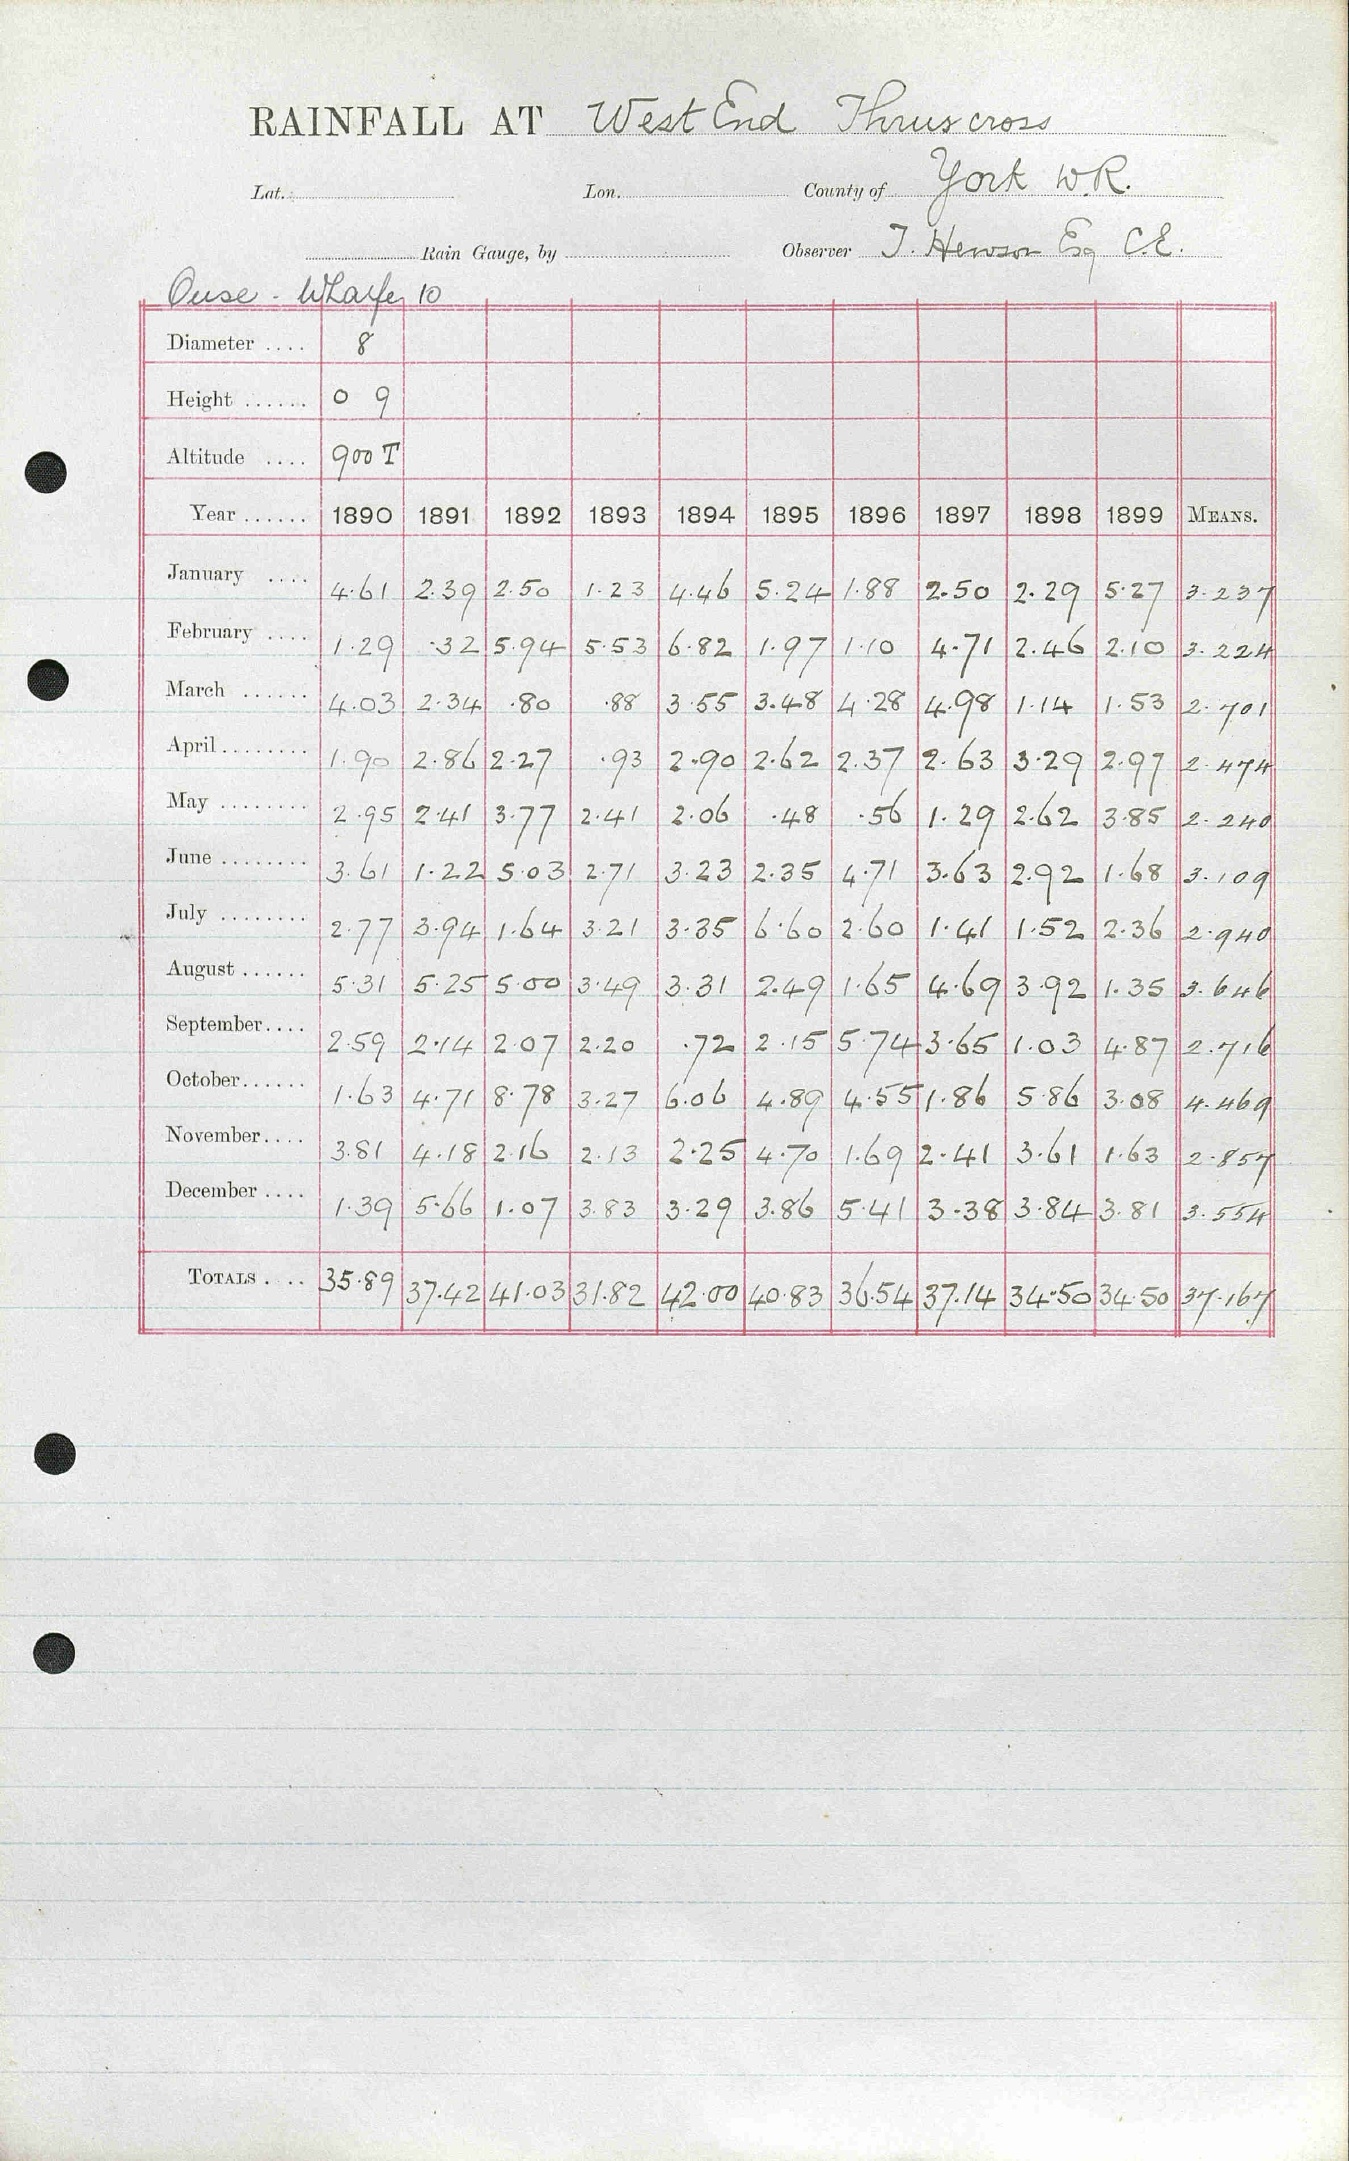 RAINFALL AT West End Thruscross
Lat. Lon. County of York W.R.
Rain Gauge, by Observer T. Hewson Esq C.E.
Ouse - Wharfe, 10
Diameter .... 8
Height ...... 0 9
Altitude .... 900 T
Year ...... 1890 1891 1892 1893 1894 1895 1896 1897 1898 1899 MEANS.
January .... 4.61 2.39 2.50 1.23 4.46 5.24 1.88 2.50 2.29 5.27 3.237
February .... 1.29 .32 5.94 5.53 6.82 1.97 1.10 4.71 2.46 2.10 3.224
March ...... 4.03 2.34 .80 .88 3.55 3.48 4.28 4.98 1.14 1.53 2.701
April ........ 1.90 2.86 2.27 .93 2.90 2.62 2.37 2.63 3.29 2.97 2.474
May ........ 2.95 2.41 3.77 2.41 2.06 .48 .56 1.29 2.62 3.85 2.240
June ........ 3.61 1.22 5.03 2.71 3.23 2.35 4.71 3.63 2.92 1.68 3.109
July ........ 2.77 3.94 1.64 3.21 3.35 6.60 2.60 1.41 1.52 2.36 2.940
August ...... 5.31 5.25 5.00 3.49 3.31 2.49 1.65 4.69 3.92 1.35 3.646
September .... 2.59 2.14 2.07 2.20 .72 2.15 5.74 3.65 1.03 4.87 2.716
October ...... 1.63 4.71 8.78 3.27 6.06 4.89 4.55 1.86 5.86 3.08 4.469
November .... 3.81 4.18 2.16 2.13 2.25 4.70 1.69 2.41 3.61 1.63 2.857
December .... 1.39 5.66 1.07 3.83 3.29 3.86 5.41 3.38 3.84 3.81 3.554
TOTALS .... 35.89 37.42 41.03 31.82 42.00 40.83 36.54 37.14 34.50 34.50 37.167